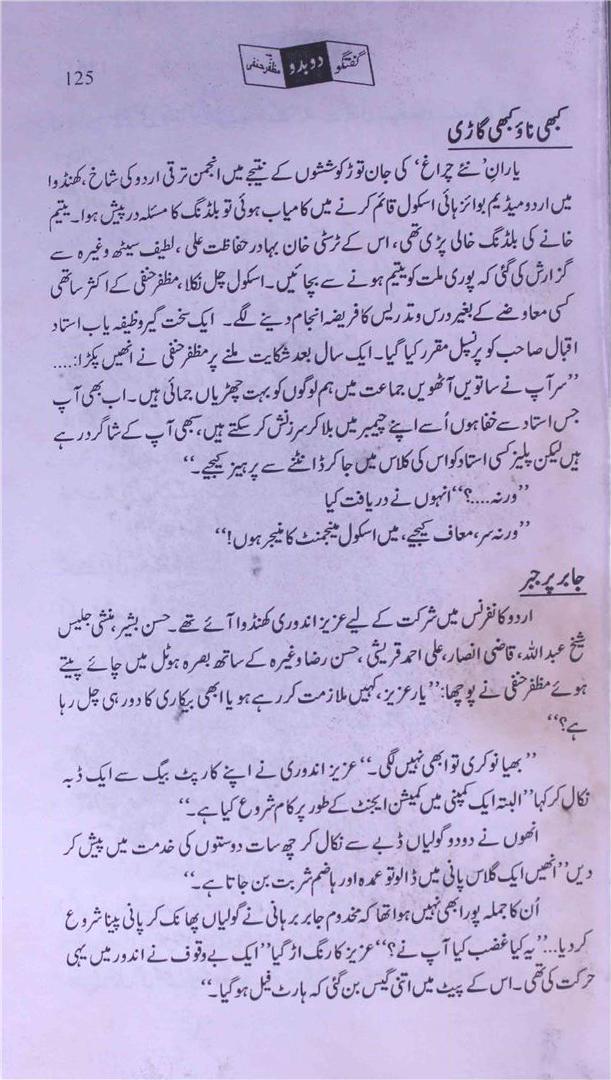 125
گفتگو دوبدو مظفر حنفی
کبھی ناؤ کبھی گاڑی
یارانِ ’نئے چراغ‘ کی جان توڑ کوششوں کے نتیجے میں انجمن ترقی اردو کی شاخ، کھنڈوا
میں اردو میڈیم بوائز ہائی اسکول قائم کرنے میں کامیاب ہوئی تو بلڈنگ کا مسئلہ درپیش ہوا۔ یتیم
خانے کی بلڈنگ خالی پڑی تھی، اس کے ٹرسٹی خان بہادر حفاظت علی، لطیف سیٹھ وغیرہ سے
گزارش کی گئی کہ پوری ملت کو یتیم ہونے سے بچائیں۔ اسکول چل نکلا، مظفر حنفی کے اکثر ساتھی
کسی معاوضے کے بغیر درس و تدریس کا فریضہ انجام دینے لگے۔ ایک سخت گیر وظیفہ یاب استاد
اقبال صاحب کو پرنسپل مقرر کیا گیا۔ ایک سال بعد شکایت ملنے پر مظفر حنفی نے انھیں پکڑا:....
’’سر آپ نے ساتویں آٹھویں جماعت میں ہم لوگوں کو بہت چھڑیاں جمائی ہیں۔ اب بھی آپ
جس استاد سے خفا ہوں اُسے اپنے چیمبر میں بلا کر سرزنش کر سکتے ہیں، سبھی آپ کے شاگرد رہے
ہیں لیکن پلیز کسی استاد کو اس کی کلاس میں جا کر ڈانٹنے سے پرہیز کیجیے۔‘‘
’’ورنہ....؟‘‘ انہوں نے دریافت کیا
’’ورنہ سر، معاف کیجیے، میں اسکول مینجمنٹ کا منیجر ہوں!‘‘
جابر پر جبر
اردو کانفرنس میں شرکت کے لیے عزیز اندوری کھنڈوا آئے تھے۔ حسن بشیر، منشی جلیس
شیخ عبداللہ، قاضی انصار، علی احمد قریشی، حسن رضا وغیرہ کے ساتھ بصرہ ہوٹل میں چائے پیتے
ہوئے مظفر حنفی نے پوچھا: ’’یار عزیز، کہیں ملازمت کر رہے ہو یا ابھی بیکاری کا دور ہی چل رہا
ہے؟‘‘
’’بھیا نوکری تو ابھی نہیں لگی۔‘‘ عزیز اندوری نے اپنے کارپٹ بیگ سے ایک ڈبہ
نکال کر کہا ’’البتہ ایک کمپنی میں کمیشن ایجنٹ کے طور پر کام شروع کیا ہے۔‘‘
انھوں نے دو دو گولیاں ڈبے سے نکال کر چھ سات دوستوں کی خدمت میں پیش کر
دیں ’’انھیں ایک گلاس پانی میں ڈالو تو عمدہ اور ہاضم شربت بن جاتا ہے۔‘‘
اُن کا جملہ پورا بھی نہیں ہوا تھا کہ مخدوم جابر برہانی نے گولیاں پھانک کر پانی پینا شروع
کر دیا... ’’یہ کیا غضب کیا آپ نے؟‘‘ عزیز کا رنگ اڑ گیا ’’ایک بے وقوف نے اندور میں یہی
حرکت کی تھی۔ اس کے پیٹ میں اتنی گیس بن گئی کہ ہارٹ فیل ہو گیا۔‘‘